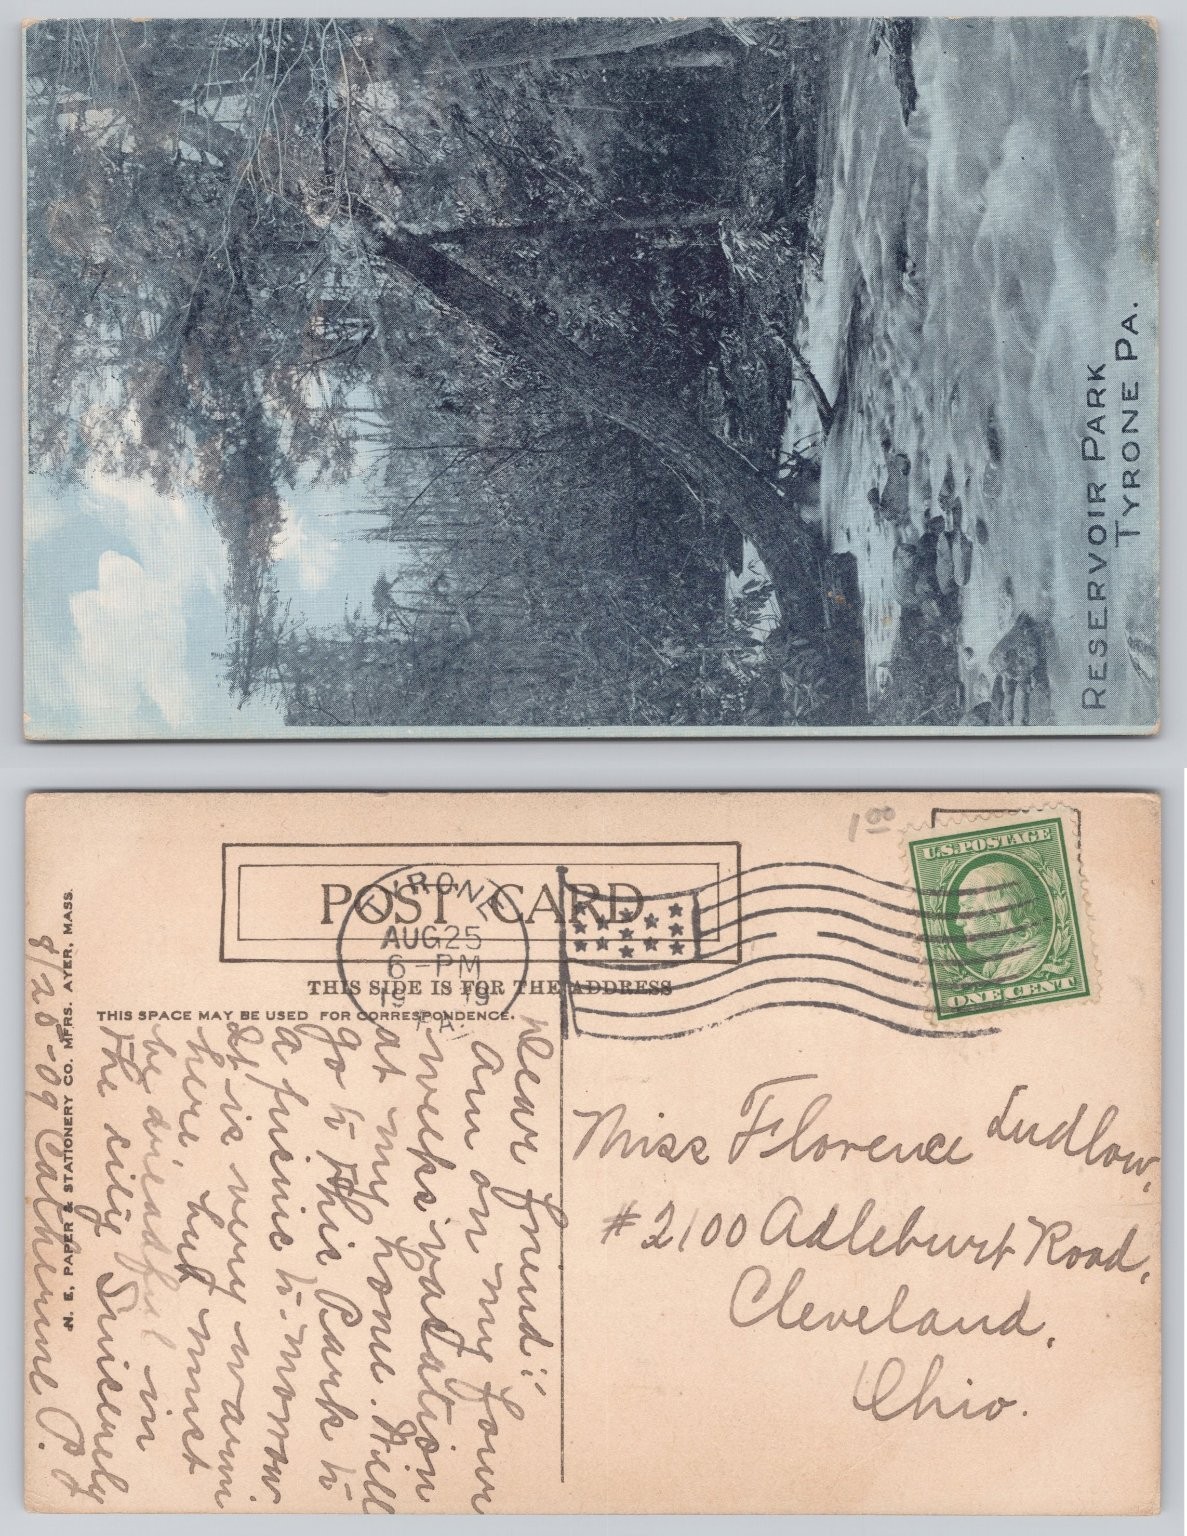 RESERVOIR PARK
TYRONE PA.
1 00
U.S. POSTAGE
ONE CENT
POST CARD
TYRONE
AUG 25
6-PM
19
PA.
THIS SIDE IS FOR THE ADDRESS
THIS SPACE MAY BE USED FOR CORRESPONDENCE.
N. E. PAPER & STATIONERY CO. MFRS. AYER, MASS.
Dear friend:
Am on my four
weeks vacation
at my home. Will
go to this Park to
a picnic to-morrow
It is very warm
here, but must
be dreadful in
the city Sincerely
Catherine P.
Miss Florence Ludlow,
#2100 Adleburt Road,
Cleveland,
Ohio.